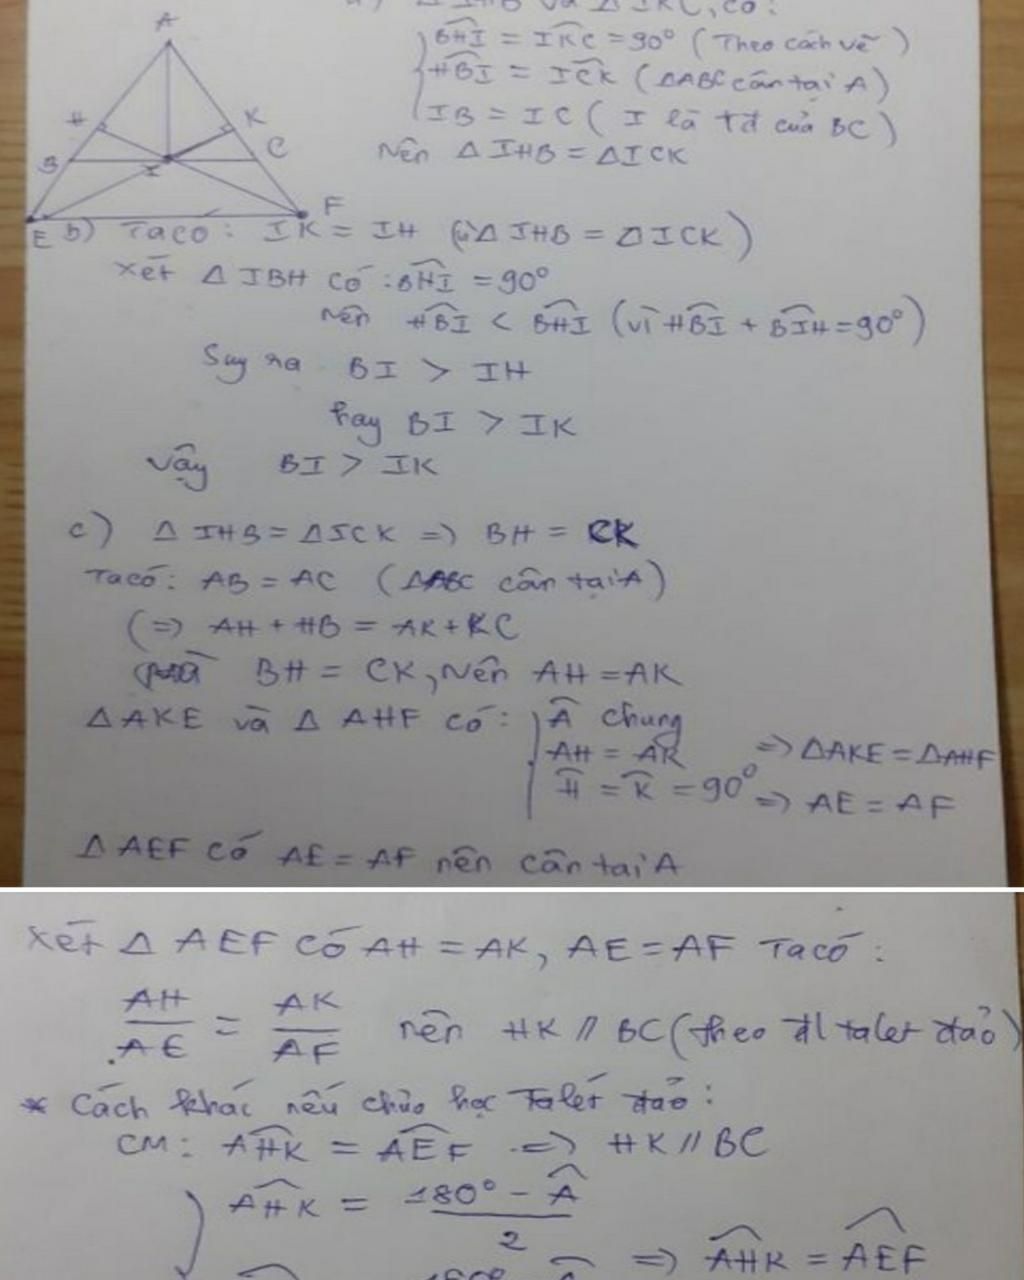 A
H
K
B
C
I
E
F
{ BĤI = IK̂C = 90° (Theo cách vẽ)
HB̂I = IĈK (ΔABC cân tại A)
IB = IC ( I là tđ của BC)
Nên Δ IHB = ΔICK
b) Ta có: IK = IH (vì Δ IHB = Δ ICK)
Xét Δ IBH có : BĤI = 90°
nên HB̂I < BĤI (vì HB̂I + BÎH = 90°)
Suy ra BI > IH
hay BI > IK
Vậy BI > IK
c) Δ IHB = ΔICK => BH = CK
Ta có: AB = AC (ΔABC cân tại A)
(=> AH + HB = AK + KC
mà BH = CK, Nên AH = AK
ΔAKE và Δ AHF có: { Â chung
AH = AK => ΔAKE = ΔAHF
Ĥ = K̂ = 90° => AE = AF
Δ AEF có AE = AF nên cân tại A
Xét Δ AEF có AH = AK, AE = AF Ta có :
AH/AE = AK/AF nên HK // BC (theo đl talet đảo)
* Cách khác nếu chưa học Talét đảo :
CM: AĤK = AÊF => HK // BC
AĤK = (180° - Â)/2
=> AĤK = AÊF